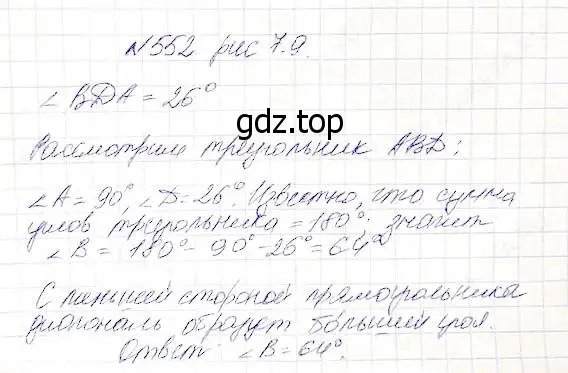 №552 рис 7.9.
∠BDA = 26°
gdz.top
Рассмотрим треугольник ABD:
∠A = 90°, ∠D = 26°. Известно, что сумма
углов треугольника = 180°; значит
∠B = 180° - 90° - 26° = 64°
С меньшей стороной прямоугольника
диагональ образует больший угол.
Ответ: ∠B = 64°.